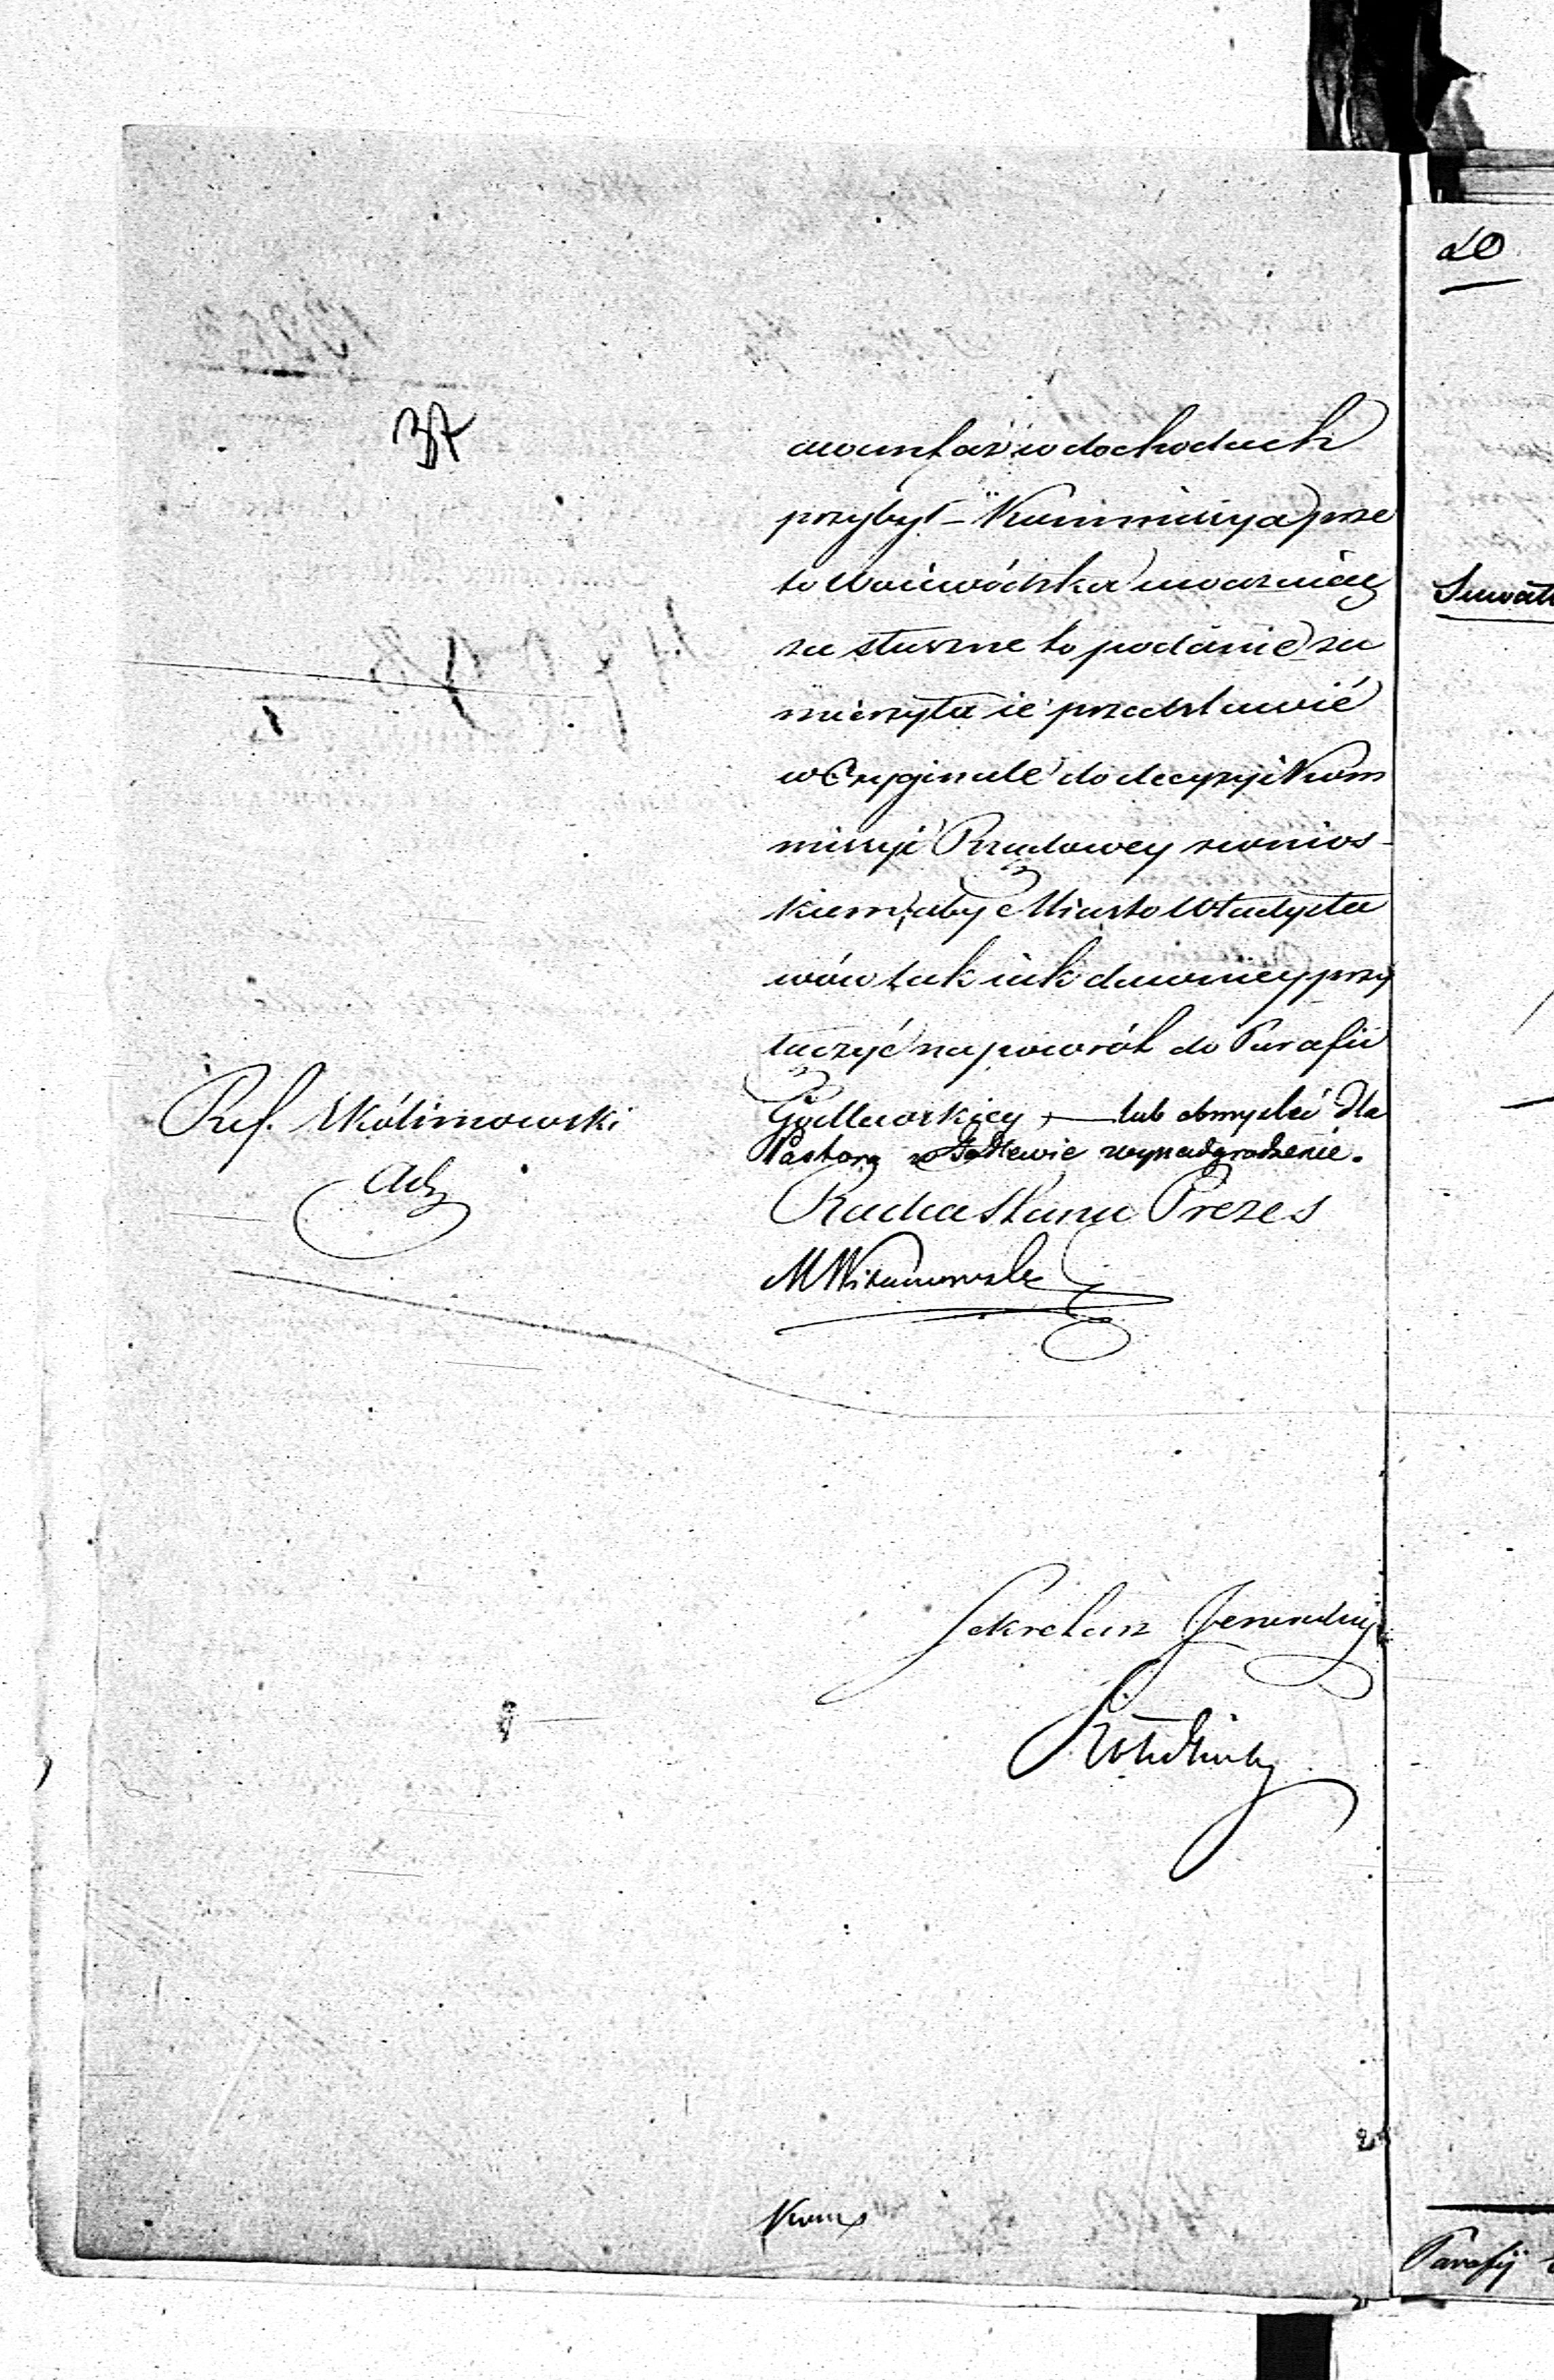 37
awantaż w dochodach
przybył – Kommissya prze
to Woiewódzka uważaiąc
za słuszne to podanie za
mierzyła ie przedstawić
w Oryginale do decyzyi Kom
missyi Rządowey z wnios-
kiem, aby Miasto Władysła
wów tak iak dawniey przy
łączyć na powrót do Parafii
Godlewskiey, — lub obmyśleć dla
Pastora w Godlewie wynadgrodzenie.
Radca Stanu Prezes
Ref. Skólimowski
Sekretarz Jeneralny
20
Parafij